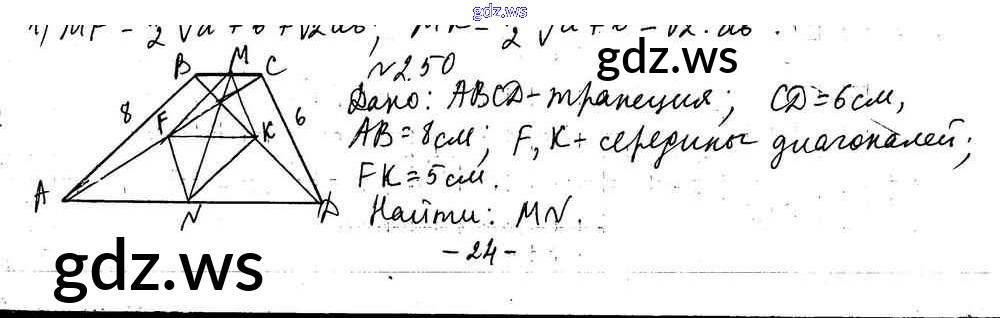 gdz.ws
№250
Дано: ABCD - трапеция; CD = 6 см,
AB = 8 см; F, K - середины диагоналей;
FK = 5 см.
Найти: MN.
- 24 -
B M C
8 6
F K
A N D
gdz.ws
gdz.ws